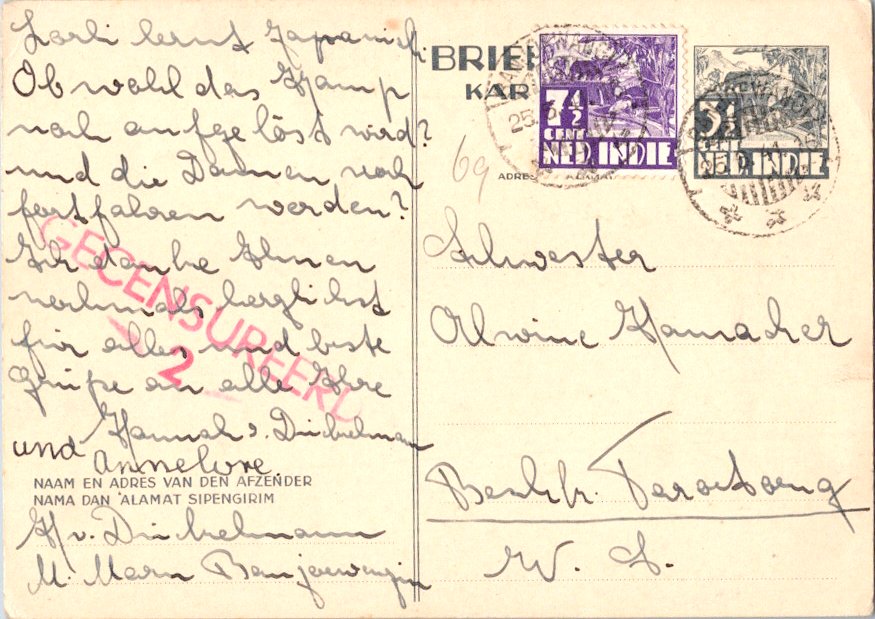 Lorli lernt Japanisch.
Ob wohl das Kamp
noch aufgelöst wird?
und die Damen noch
fortfahren werden?
Ich danke Ihnen
nochmals herzlichst
für alles und beste
Grüße an alle Ihre
Hannah v. Dinkelmann
und Annelore.
NAAM EN ADRES VAN DEN AFZENDER
NAMA DAN ALAMAT SIPENGIRIM
H. v. Dinkelmann
M. Marn Banjoewangin
GECENSUREERD
2
BRIEF
KAR
7½
CENT
NED. INDIE
3½
CENT
NED. INDIE
25.
25.
69
ADRES ALAMAT
Schwester
Alwine Hamacher
Taroetoeng
W. S.